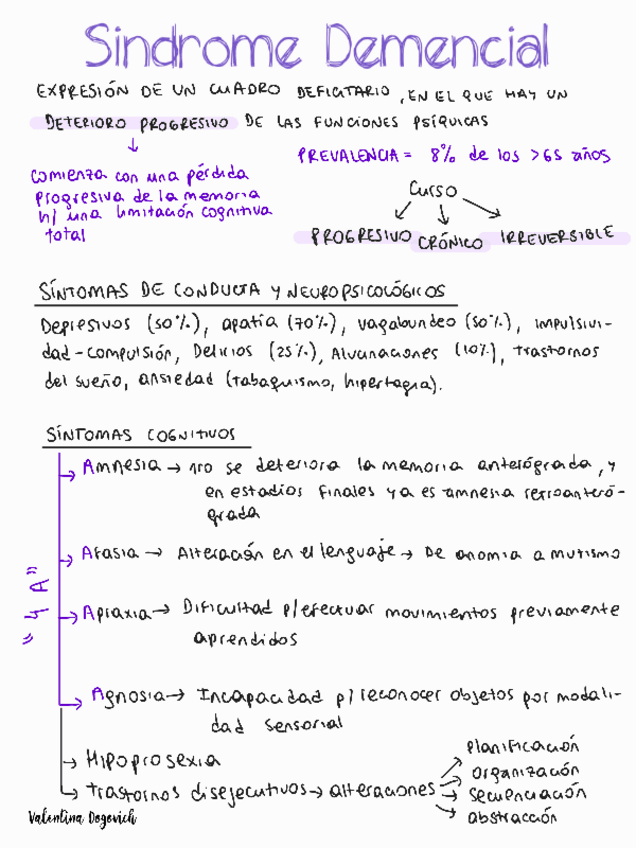 Sindrome Demencial
EXPRESIÓN DE UN CUADRO DEFICITARIO, EN EL QUE HAY UN
DETERIORO PROGRESIVO DE LAS FUNCIONES PSÍQUICAS
comienza con una pérdida
progresiva de la memoria
h/ una limitación cognitiva
total
PREVALENCIA = 8% de los >65 años
Curso
PROGRESIVO CRÓNICO IRREVERSIBLE
SÍNTOMAS DE CONDUCTA Y NEUROPSICOLÓGICOS
Depresivos (50%), apatía (70%), vagabundeo (50%), impulsivi-
dad-compulsión, Delirios (25%), Alucinaciones (10%), trastornos
del sueño, ansiedad (tabaquismo, hiperfagia).
SÍNTOMAS COGNITIVOS
"4 A"
Amnesia → 1ro se deteriora la memoria anterógrada, y
en estadios finales ya es amnesia retroanteró-
grada
Afasia → Alteración en el lenguaje → De anomia a mutismo
Apraxia → Dificultad p/efectuar movimientos previamente
aprendidos
Agnosia → Incapacidad p/reconocer objetos por modali-
dad sensorial
Hipoprosexia
trastornos disejecutivos → alteraciones
planificación
organización
secuenciación
abstracción
Valentina Dogovich